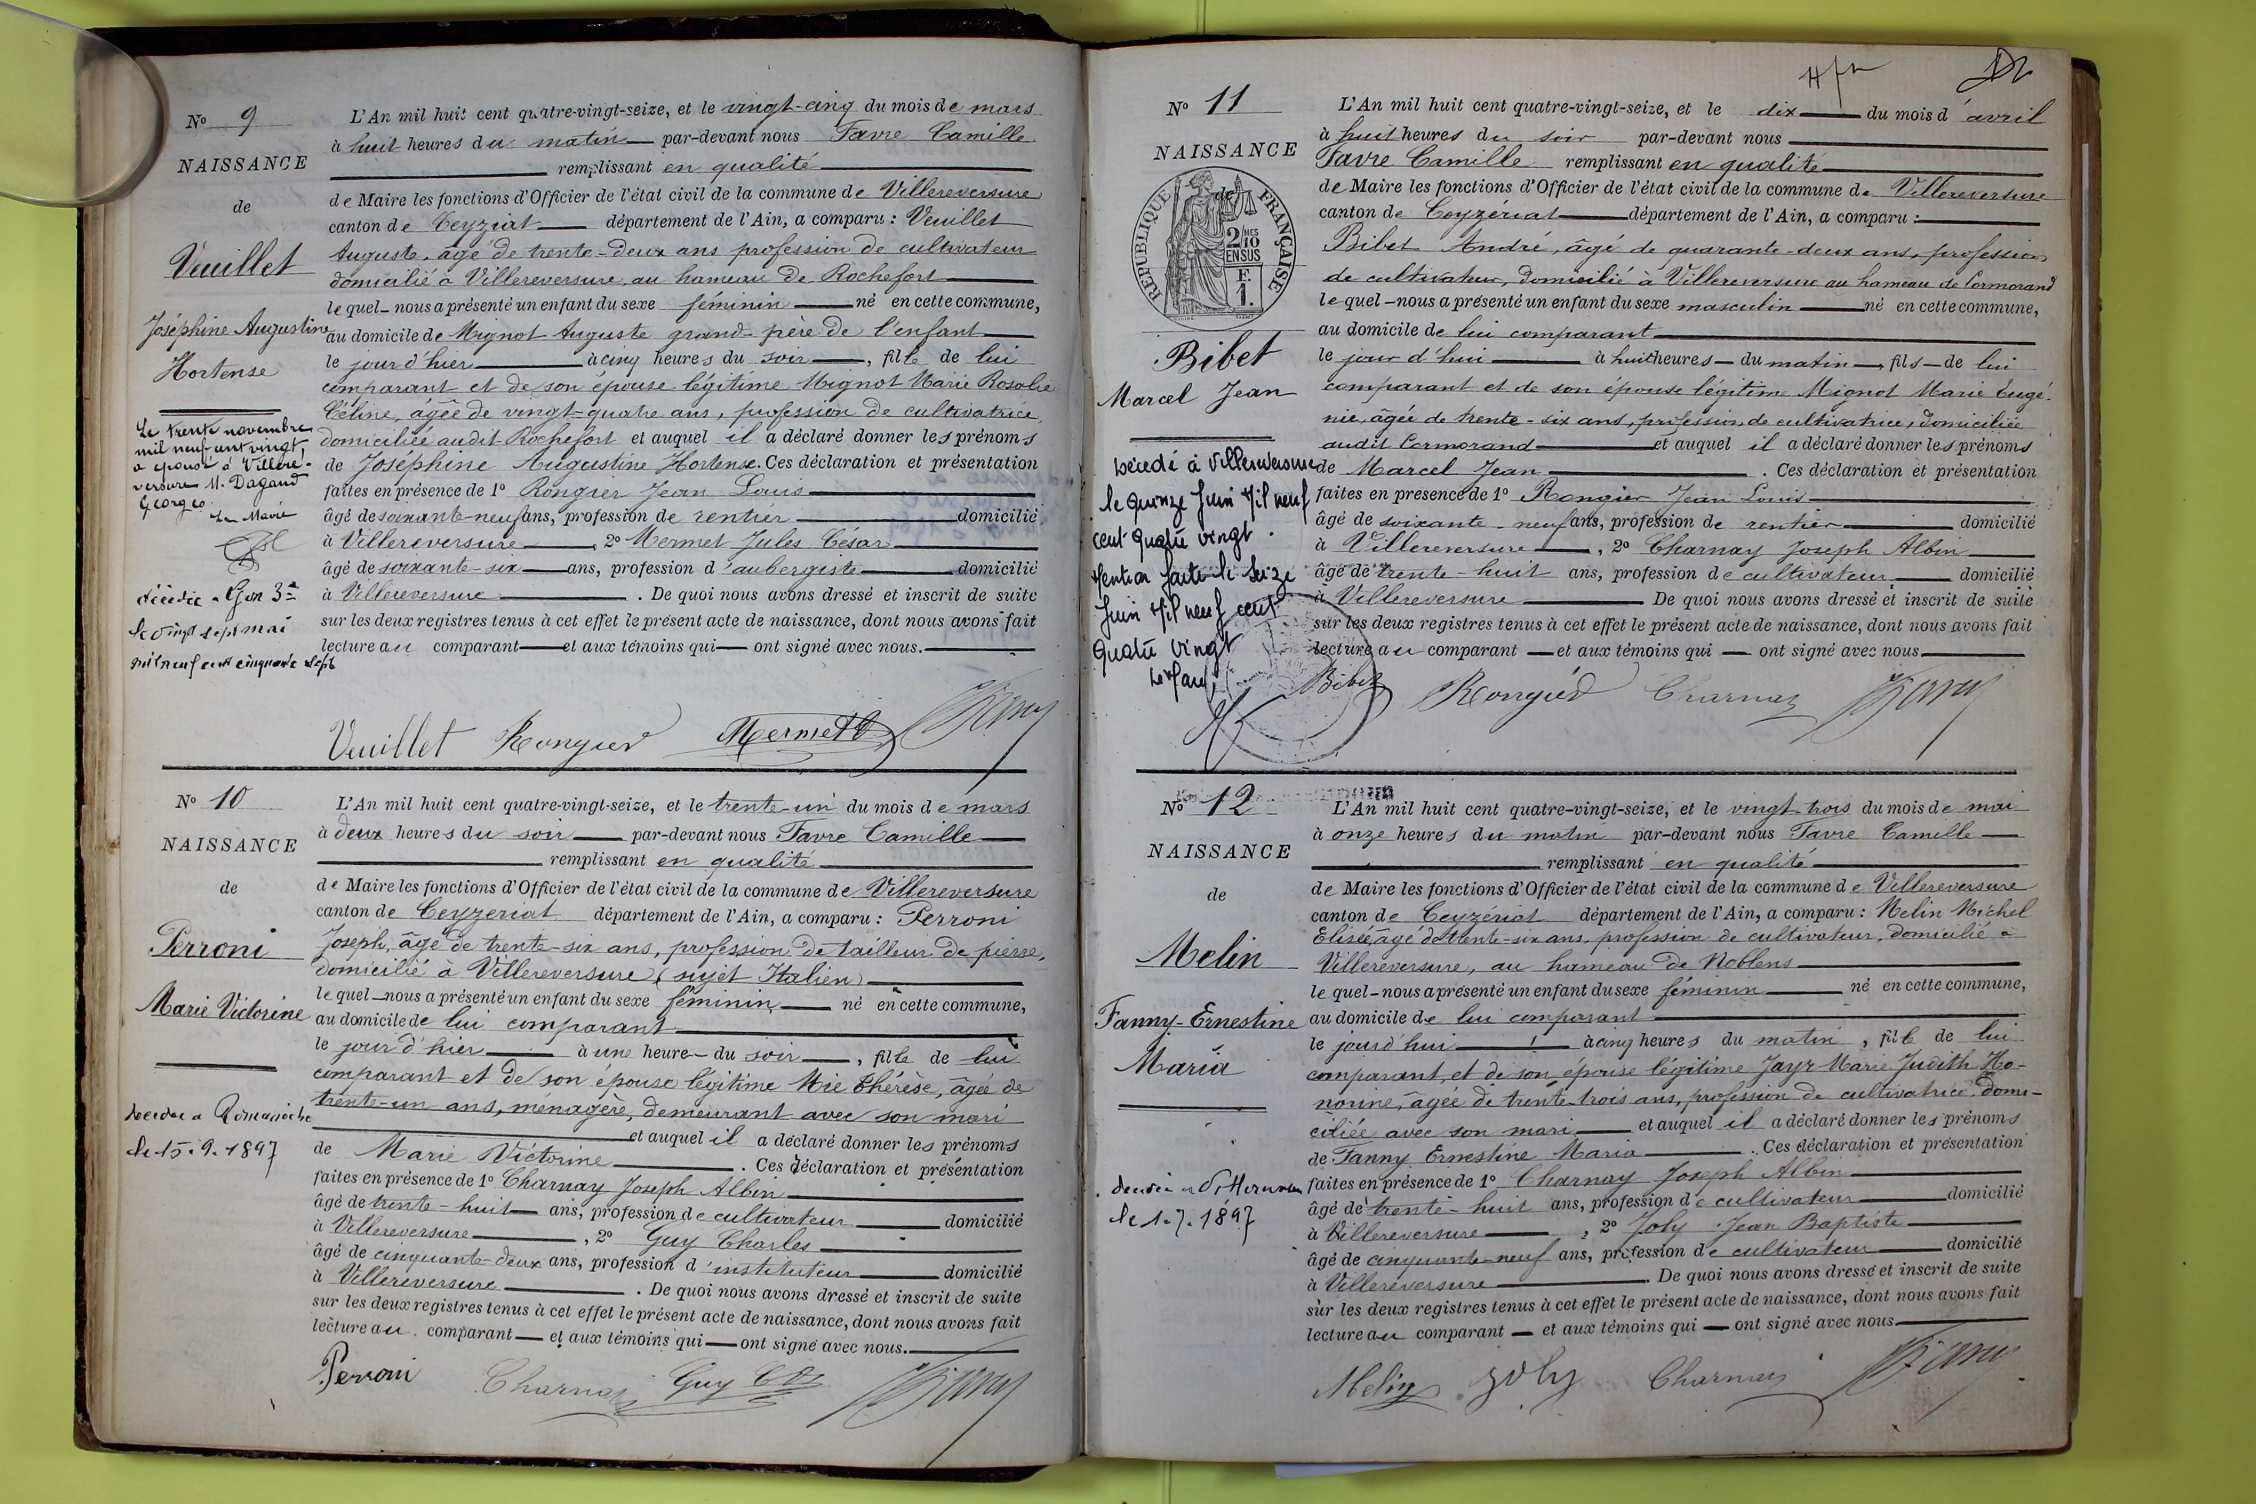 No 9
NAISSANCE
de
Veuillet
Joséphine Augustine
Hortense
Le trente novembre
mil neuf cent vingt,
a épousé à Villere-
versure M. Dagand
Georges.
Le Maire
décédée à Lyon 3e
le vingt sept mai
mil neuf cent cinquante sept
L'An mil huit cent quatre-vingt-seize, et le vingt-cinq du mois de mars
à huit heures du matin par-devant nous Favre Camille
remplissant en qualité
de Maire les fonctions d'Officier de l'état civil de la commune de Villereversure
canton de Ceyziat département de l'Ain, a comparu : Veuillet
Auguste, âgé de trente-deux ans profession de cultivateur
domicilié à Villereversure, au hameau de Rochefort
le quel nous a présenté un enfant du sexe féminin né en cette commune,
au domicile de Mignot Auguste grand-père de l'enfant
le jour d'hier à cinq heures du soir, fille de lui
comparant et de son épouse légitime Mignot Marie Rosalie
Céline, âgée de vingt-quatre ans, profession de cultivatrice,
domiciliée audit Rochefort et auquel il a déclaré donner les prénoms
de Joséphine Augustine Hortense. Ces déclaration et présentation
faites en présence de 1o Rongier Jean Louis
âgé de soixante-neuf ans, profession de rentier domicilié
à Villereversure, 2o Mermet Jules César
âgé de soixante-six ans, profession d'aubergiste domicilié
à Villereversure. De quoi nous avons dressé et inscrit de suite
sur les deux registres tenus à cet effet le présent acte de naissance, dont nous avons fait
lecture au comparant et aux témoins qui ont signé avec nous.
Veuillet Rongier Mermet
No 10
NAISSANCE
de
Perroni
Marie Victorine
décédée à Romanèche
le 15.9.1897
L'An mil huit cent quatre-vingt-seize, et le trente-un du mois de mars
à deux heures du soir par-devant nous Favre Camille
remplissant en qualité
de Maire les fonctions d'Officier de l'état civil de la commune de Villereversure
canton de Ceyzeriat département de l'Ain, a comparu : Perroni
Joseph, âgé de trente-six ans, profession de tailleur de pierre,
domicilié à Villereversure (sujet Italien)
le quel nous a présenté un enfant du sexe féminin né en cette commune,
au domicile de lui comparant
le jour d'hier à une heure du soir, fille de lui
comparant et de son épouse légitime Mie Thérèse, âgée de
trente-un ans, ménagère, demeurant avec son mari
et auquel il a déclaré donner les prénoms
de Marie Victorine. Ces déclaration et présentation
faites en présence de 1o Charnay Joseph Albin
âgé de trente-huit ans, profession de cultivateur domicilié
à Villereversure, 2o Guy Charles
âgé de cinquante-deux ans, profession d'instituteur domicilié
à Villereversure. De quoi nous avons dressé et inscrit de suite
sur les deux registres tenus à cet effet le présent acte de naissance, dont nous avons fait
lecture au comparant et aux témoins qui ont signé avec nous.
Perroni Charnay Guy Ch
No 11
NAISSANCE
de
RÉPUBLIQUE FRANÇAISE
2/10 MES
EN SUS
F.
1.
Bibet
Marcel Jean
Décédé à Villereversure
le quinze Juin Mil neuf
cent quatre vingt.
Mention faite le seize
Juin Mil neuf cent
quatre vingt
Le Maire,
L'An mil huit cent quatre-vingt-seize, et le dix du mois d'avril
à huit heures du soir par-devant nous
Favre Camille remplissant en qualité
de Maire les fonctions d'Officier de l'état civil de la commune de Villereversure
canton de Ceyzériat département de l'Ain, a comparu :
Bibet André, âgé de quarante-deux ans, profession
de cultivateur, domicilié à Villereversure au hameau de Cormorand
le quel nous a présenté un enfant du sexe masculin né en cette commune,
au domicile de lui comparant
le jour d'hui à huit heures du matin, fils de lui
comparant et de son épouse légitime Mignot Marie Eugé-
nie, âgée de trente-six ans, profession de cultivatrice, domiciliée
audit Cormorand et auquel il a déclaré donner les prénoms
de Marcel Jean. Ces déclaration et présentation
faites en présence de 1o Rongier Jean Louis
âgé de soixante-neuf ans, profession de rentier domicilié
à Villereversure, 2o Charnay Joseph Albin
âgé de trente-huit ans, profession de cultivateur domicilié
à Villereversure De quoi nous avons dressé et inscrit de suite
sur les deux registres tenus à cet effet le présent acte de naissance, dont nous avons fait
lecture au comparant et aux témoins qui ont signé avec nous
Bibet Rongier Charnay
No 12
NAISSANCE
de
Melin
Fanny-Ernestine
Maria
décédée à
le 1.7.1897
L'An mil huit cent quatre-vingt-seize, et le vingt trois du mois de mai
à onze heures du matin par-devant nous Favre Camille
remplissant en qualité
de Maire les fonctions d'Officier de l'état civil de la commune de Villereversure
canton de Ceyzériat département de l'Ain, a comparu : Melin Michel
Elisée âgé de trente-six ans, profession de cultivateur, domicilié à
Villereversure, au hameau de Noblens
le quel nous a présenté un enfant du sexe féminin né en cette commune,
au domicile de lui comparant
le jourd'hui à cinq heures du matin, fille de lui
comparant, et de son épouse légitime Jayr Marie Judith Ho-
norine, âgée de trente-trois ans, profession de cultivatrice, domi-
ciliée avec son mari et auquel il a déclaré donner les prénoms
de Fanny Ernestine Maria. Ces déclaration et présentation
faites en présence de 1o Charnay Joseph Albin
âgé de trente-huit ans, profession de cultivateur domicilié
à Villereversure, 2o Joly Jean Baptiste
âgé de cinquante-neuf ans, profession de cultivateur domicilié
à Villereversure. De quoi nous avons dressé et inscrit de suite
sur les deux registres tenus à cet effet le présent acte de naissance, dont nous avons fait
lecture au comparant et aux témoins qui ont signé avec nous
Melin Joly Charnay